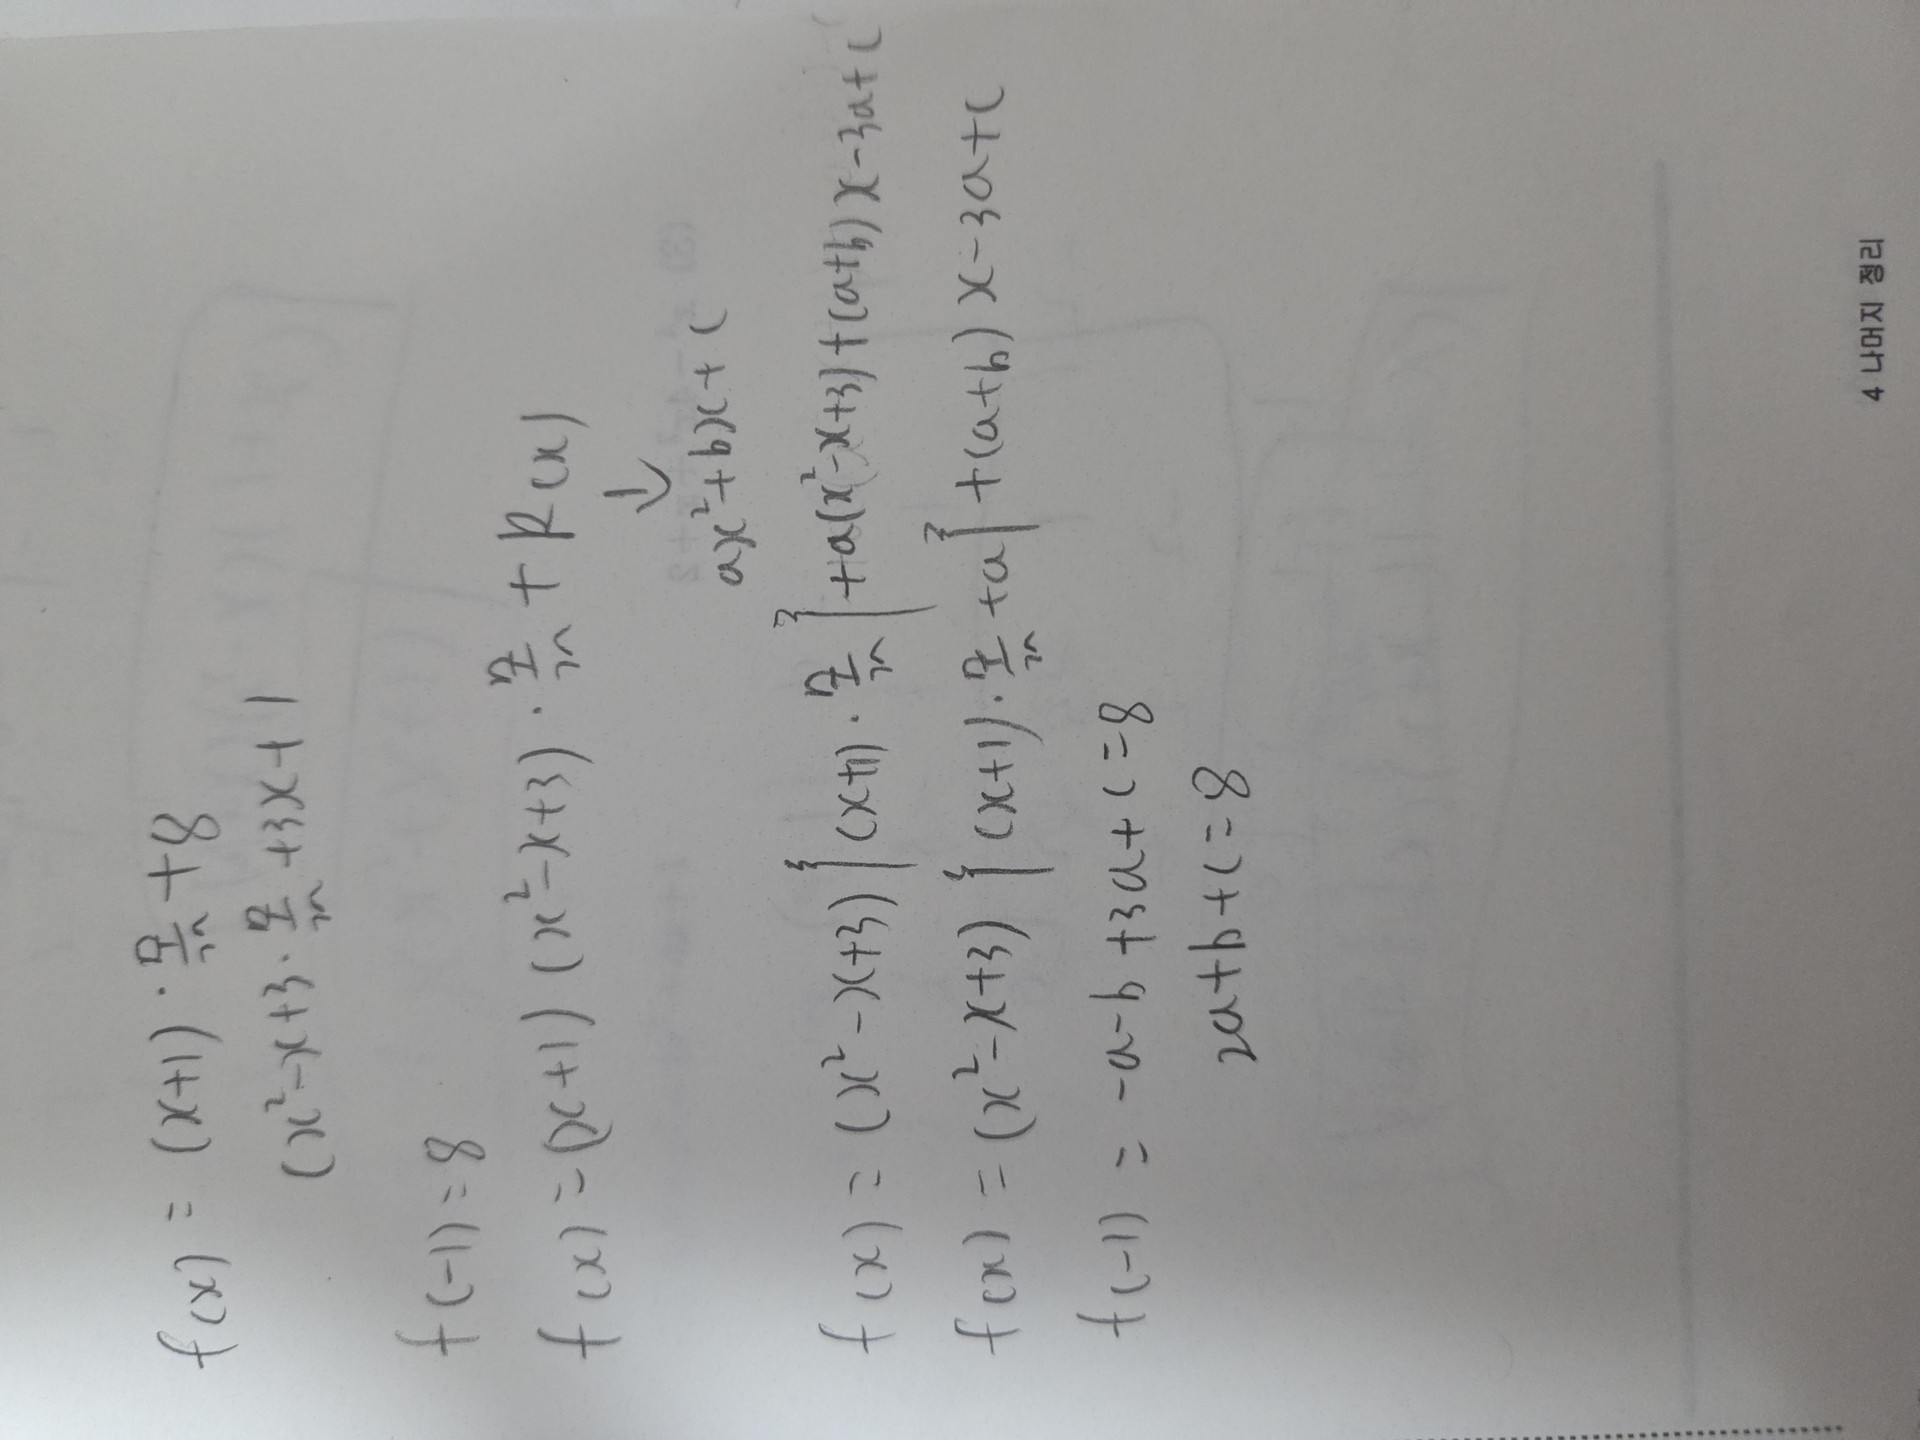 f(x) = (x+1)·몫 +8
(x²-x+3·몫 +3x+1
f(-1)=8
f(x)=(x+1)(x²-x+3)·몫 + R(x)
↓
ax²+bx+c
f(x) = (x²-x+3){(x+1)·몫}+a(x²-x+3)+(a+b)x-3a+c
f(x) = (x²-x+3){(x+1)·몫+a}+(a+b)x-3a+c
f(-1) = -a-b+3a+c=8
2a+b+c=8
4 나머지 정리